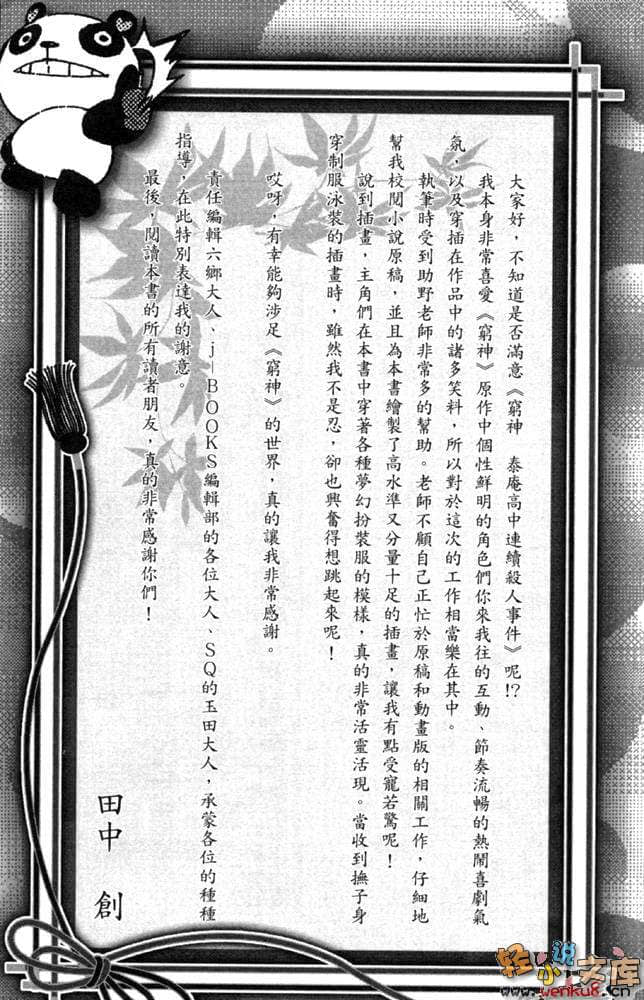 大家好，不知道是否滿意《窮神　泰庵高中連續殺人事件》呢!?
我本身非常喜愛《窮神》原作中個性鮮明的角色們你來我往的互動、節奏流暢的熱鬧喜劇氣
氛，以及穿插在作品中的諸多笑料，所以對於這次的工作相當樂在其中。
執筆時受到助野老師非常多的幫助。老師不顧自己正忙於原稿和動畫版的相關工作，仔細地
幫我校閱小說原稿，並且為本書繪製了高水準又分量十足的插畫，讓我有點受寵若驚呢！
說到插畫，主角們在本書中穿著各種夢幻扮裝服的模樣，真的非常活靈活現。當收到撫子身
穿制服泳裝的插畫時，雖然我不是忍，卻也興奮得想跳起來呢！
哎呀，有幸能夠涉足《窮神》的世界，真的讓我非常感謝。
責任編輯六鄉大人、j－BOOKS編輯部的各位大人、SQ的玉田大人，承蒙各位的種種
指導，在此特別表達我的謝意。
最後，閱讀本書的所有讀者朋友，真的非常感謝你們！
田中　創
轻小说文库
www.wenku8.cn